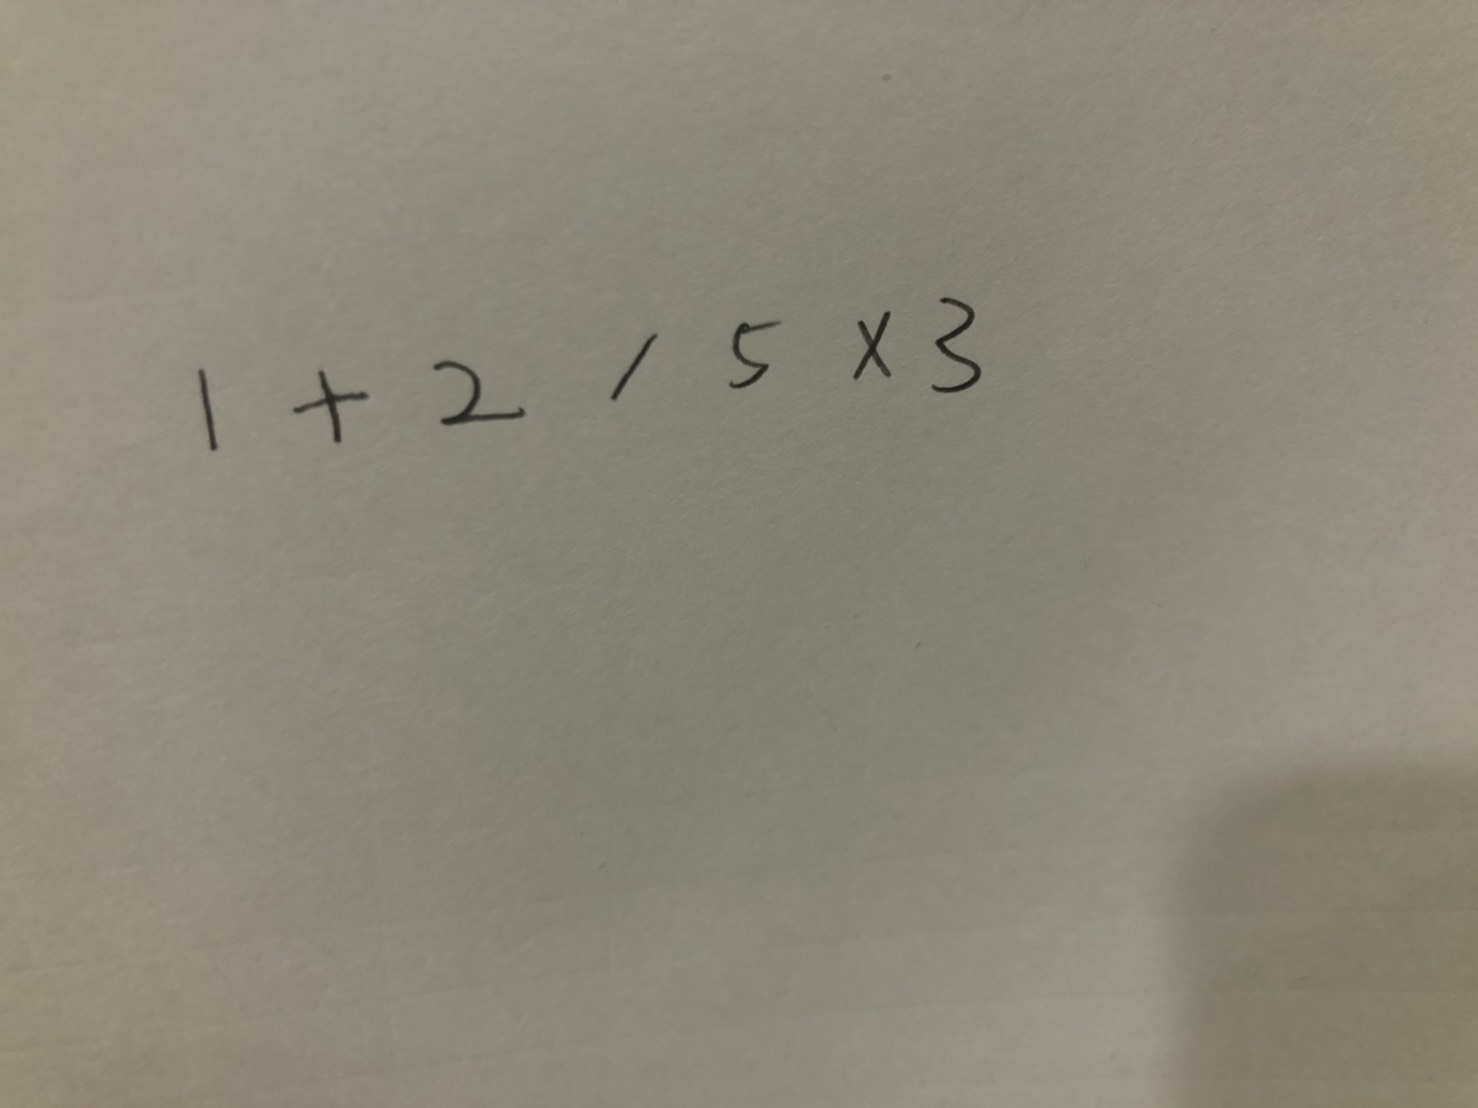 1 + 2 / 5 × 3